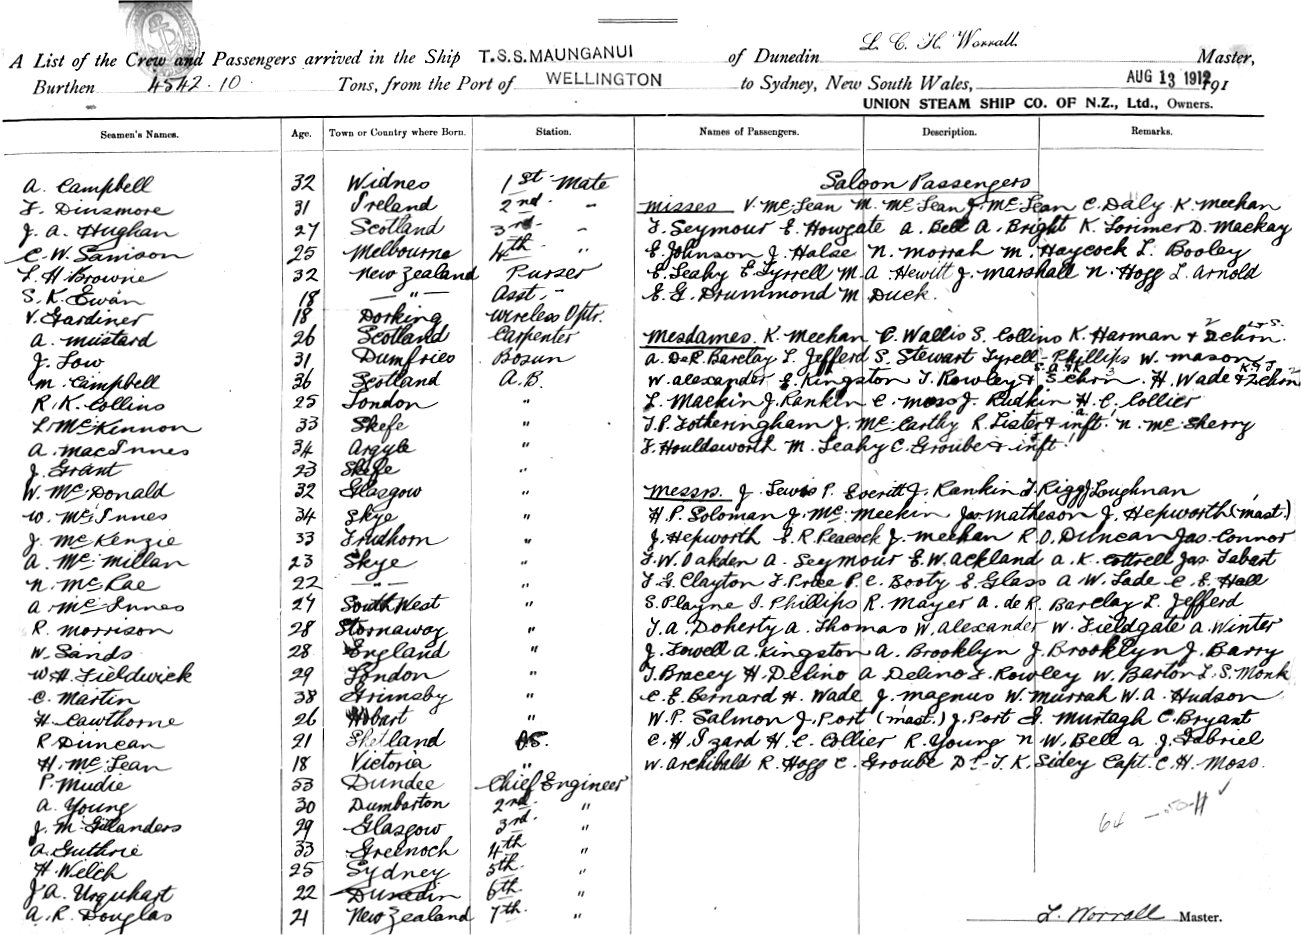 A List of the Crew and Passengers arrived in the Ship T.S.S. MAUNGANUI of Dunedin L. C. H. Worrall. Master,
Burthen 4542.10 Tons, from the Port of WELLINGTON to Sydney, New South Wales, AUG 13 1912 191
UNION STEAM SHIP CO. OF N.Z., Ltd., Owners.
Seamen's Names. Age. Town or Country where Born. Station. Names of Passengers. Description. Remarks.
A. Campbell 32 Widnes 1st Mate
F. Dinsmore 31 Ireland 2nd "
J. A. Hughan 27 Scotland 3rd "
C. W. Samson 25 Melbourne 4th "
L. H. Browne 32 New Zealand Purser
S. K. Ewan 18 " Asst. "
V. Gardiner 18 Dorking Wireless Optr.
A. Mustard 26 Scotland Carpenter
J. Low 31 Dumfries Bosun
M. Campbell 36 Scotland A.B.
R. K. Collins 25 London "
L. McKinnon 33 Skefe "
A. MacInnes 34 Argyle "
J. Grant 23 Skefe "
W. McDonald 32 Glasgow "
W. McInnes 34 Skye "
J. McKenzie 33 Trudhorn "
A. McMillan 23 Skye "
N. McRae 22 " "
A. McInnes 27 South West "
R. Morrison 28 Stornaway "
W. Sands 28 England "
W. H. Fieldwick 29 London "
C. Martin 38 Grimsby "
H. Cawthorne 26 Hobart "
R. Duncan 21 Shetland O.S.
H. McLean 18 Victoria "
P. Mudie 53 Dundee Chief Engineer
A. Young 30 Dumbarton 2nd "
J. M. Gillanders 29 Glasgow 3rd "
A. Guthrie 33 Greenoch 4th "
H. Welch 25 Sydney 5th "
J. A. Urquhart 22 Dunedin 6th "
A. R. Douglas 21 New Zealand 7th "
Saloon Passengers
Misses V. McLean M. McLean J. McLean C. Daly K. Meehan
F. Seymour E. Howgate A. Bell A. Bright K. Lorimer D. Mackay
E. Johnson J. Halse N. Morrah M. Haycock L. Booley
E. Leahy E. Tyrrell M. A. Hewitt J. Marshall N. Hogg L. Arnold
E. G. Drummond M. Duck.
Mesdames. K. Meehan C. Wallis S. Collins K. Harman & 2 chrn.
A. DeR. Barclay L. Jefferd S. Stewart Tyrell-Phillips W. Mason
W. Alexander E. Kingston F. Rowley & 3 chrn. H. Wade & 2 chrn
L. Mackin J. Rankin C. Moss J. Rudkin H. C. Collier
J. P. Fotheringham J. McCarthy R. Lister & inft. N. McSherry
F. Houldsworth M. Leahy C. Groube & inft.
Messrs. J. Lewis P. Everitt J. Rankin T. Rigg J. Loughnan
H. P. Soloman J. McMeekin Jas Matheson J. Hepworth (mast.)
J. Hepworth E. R. Peacock J. Meehan R. O. Duncan Jas. Connor
F. W. Oakden A. Seymour E. W. Ackland A. K. Cottrell Jas. Tabart
T. G. Clayton T. Price P. C. Booty E. Glass A. W. Lade C. E. Hall
S. Playne I. Phillips R. Mayer A. de R. Barclay L. Jefferd
T. A. Doherty A. Thomas W. Alexander W. Fieldgate A. Winter
J. Fewell A. Kingston A. Brooklyn J. Brooklyn J. Barry
T. Bracey H. Delino A. Delino F. Rowley W. Barton L. S. Monk
C. E. Bernard H. Wade J. Magnus W. Murrah W. A. Hudson
W. P. Salmon J. Port (mast.) J. Port G. Murtagh C. Bryant
C. H. Izard H. C. Collier R. Young N. W. Bell A. J. Gabriel
W. Archibald R. Hogg C. Groube Dr. T. K. Sidey Capt. C. H. Moss.
64
L. Worrall Master.